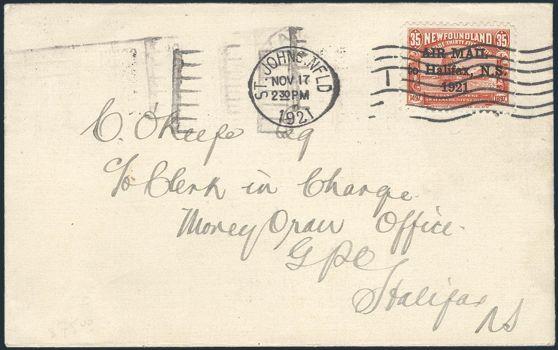 35 NEWFOUNDLAND 35
AIR MAIL
to Halifax, N.S.
1921
ST. JOHN'S NFLD
NOV 17
2 30 PM
1921
C. O'Keefe Esq
c/o Clerk in Charge
Money Order Office
GPO
Halifax
NS